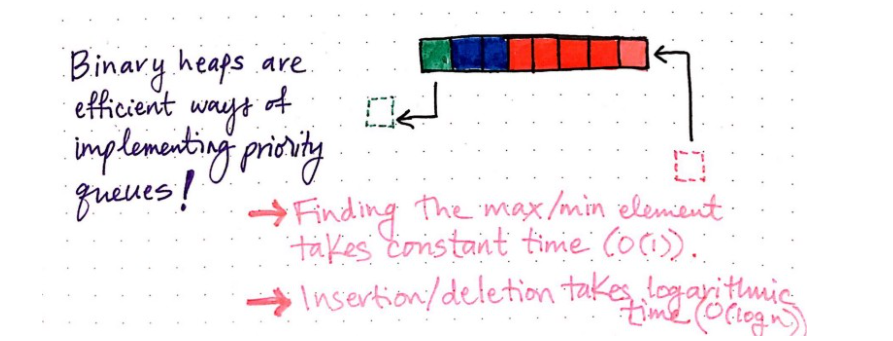 Binary heaps are
efficient ways of
implementing priority
queues!
→ Finding the max/min element
takes constant time (O(1)).
→ Insertion/deletion takes logarithmic
time (O(log n))